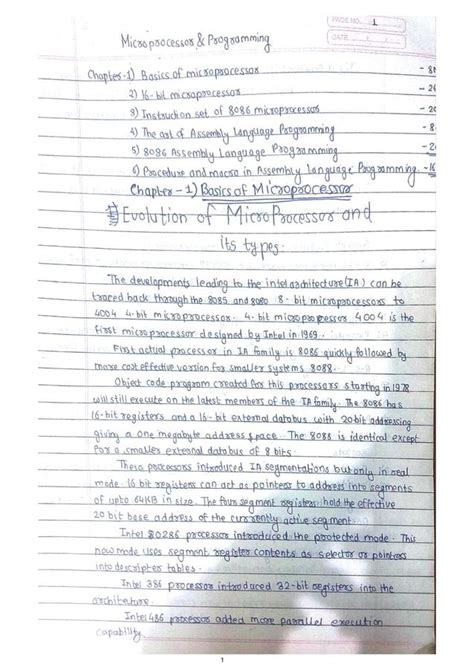 PAGE NO. 1
DATE
Microprocessor & Programming
Chapter-1) Basics of microprocessor - 8M
2) 16-bit microprocessor - 2
3) Instruction set of 8086 microprocessor - 20
4) The art of Assembly Language Programming - 8
5) 8086 Assembly Language Programming - 2
6) Procedure and macro in Assembly Language Programming. - 16
Chapter - 1) Basics of Microprocessor
1) Evolution of MicroProcessor and
its types:
The developments leading to the intel architecture (IA) can be
traced back through the 8085 and 8080 8-bit microprocessors to
4004 4-bit microprocessor. 4-bit microprocessor 4004 is the
first microprocessor designed by Intel in 1969.
First actual processor in IA family is 8086 quickly followed by
more cost effective version for smaller systems 8088.
Object code program created for this processors starting in 1978
will still execute on the latest members of the IA family. The 8086 has
16-bit registers and a 16-bit external databus with 20 bit addressing
giving a one megabyte address space. The 8088 is identical except
for a smaller external databus of 8 bits.
These processors introduced IA segmentations but only in real
mode. 16 bit registers can act as pointers to address into segments
of upto 64KB in size. The four segment registers hold the effective
20 bit base address of the currently active segment.
Intel 80286 processor introduced the protected mode. This
new mode uses segment register contents as selector or pointers
into descripter tables.
Intel 386 processor introduced 32-bit registers into the
architeture.
Intel 486 processor added more parallel execution
capability.
1